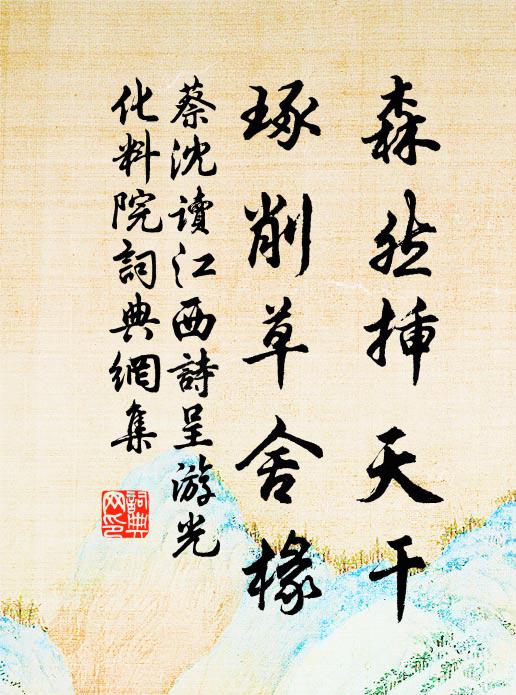 森然揷天干
琢削草舍椽
蔡沈讀江西詩呈游光
化料院詞典網集
詞典
网印